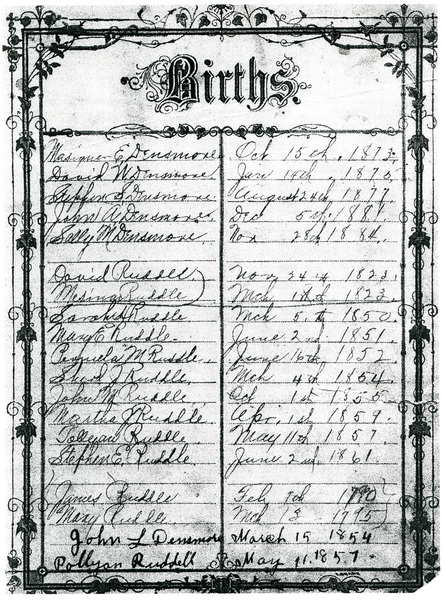 Births.
E. Densmore Oct 15th. 1873.
David W Densmore Jan 19th. 1875.
Stephen S Densmore August 24th 1877
John A. Densmore Dec 5th. 1881.
Sally M Densmore. Nov 28th 1884.
David Ruddell Nov 24th 1823.
Ruddle Mch 1st 1823.
Sarah Ruddle Mch 5th 1850.
Mary E Ruddle. June 2nd 1851.
M Ruddle. June 16th. 1852.
J Ruddle. Mch 4th 1854.
John M Ruddle. Oct 1st 1855
Martha J Ruddle. Apr. 1st 1859.
Ruddle May 11th 1857.
Stephen E. Ruddle. June 2nd 1861.
James Ruddle Feb 1790
Mary Ruddle Mch 13 1795
John L Densmore March 15 1854
Pollyan Ruddell May 11. 1857.